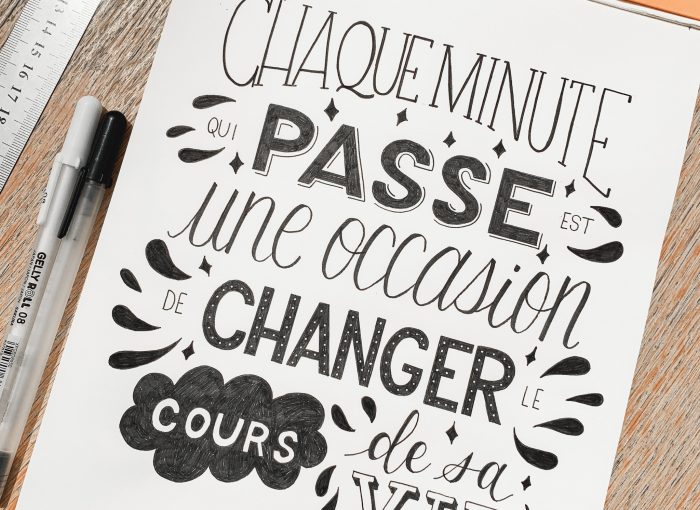 CHAQUE MINUTE
QUI PASSE EST
une occasion
DE CHANGER LE
COURS de sa
VIE
GELLY ROLL 08
13 14 15 16 17 18